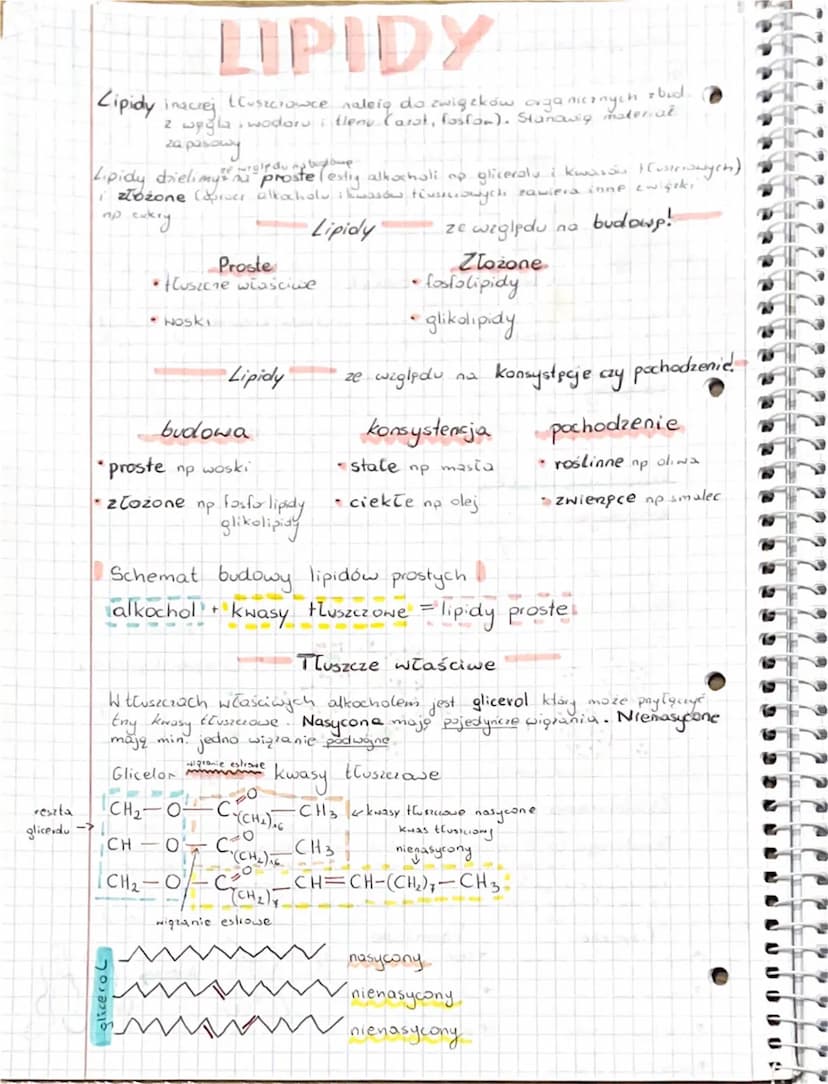 LIPIDY
Lipidy inaczej tłuszczowce należą do związków organicznych zbud.
z węgla, wodoru i tlenu (azot, fosfor). Stanowią materiał
zapasowy
ze względu na budowę
Lipidy dzielimy na proste (estry alkocholi np glicerolu i kwasów tłuszczowych)
i złożone (oprócz alkoholu i kwasów tłuszczowych zawiera inne związki
np cukry
Lipidy ze względu na budowę!
Proste Złożone
• tłuszcze właściwe • fosfolipidy
• woski • glikolipidy
Lipidy ze względu na konsystęcje czy pochodzenie!
budowa konsystencja pochodzenie
• proste np woski • stałe np masła • roślinne np oliwa
• złożone np fosfolipidy • ciekłe np olej • zwierzęce np smalec
glikolipidy
Schemat budowy lipidów prostych
alkochol + kwasy tłuszczowe = lipidy proste
Tłuszcze właściwe
W tłuszczach właściwych alkocholem jest glicerol który może przyłączyć
trzy kwasy tłuszczowe. Nasycona mają pojedyncze wiązania. Nienasycone
mają min. jedno wiązanie podwójne
Glicelor wiązanie estrowe kwasy tłuszczowe
reszta glicerdu → CH₂—O—C=O (CH₂)₁₆—CH₃ ← kwasy tłuszczowe nasycone
CH—O—C=O (CH₂)₁₆—CH₃ kwas tłuszczowy nienasycony
CH₂—O—C=O (CH₂)₇—CH=CH—(CH₂)₇—CH₃
wiązanie estrowe
glicerol
nasycony
nienasycony
nienasycony